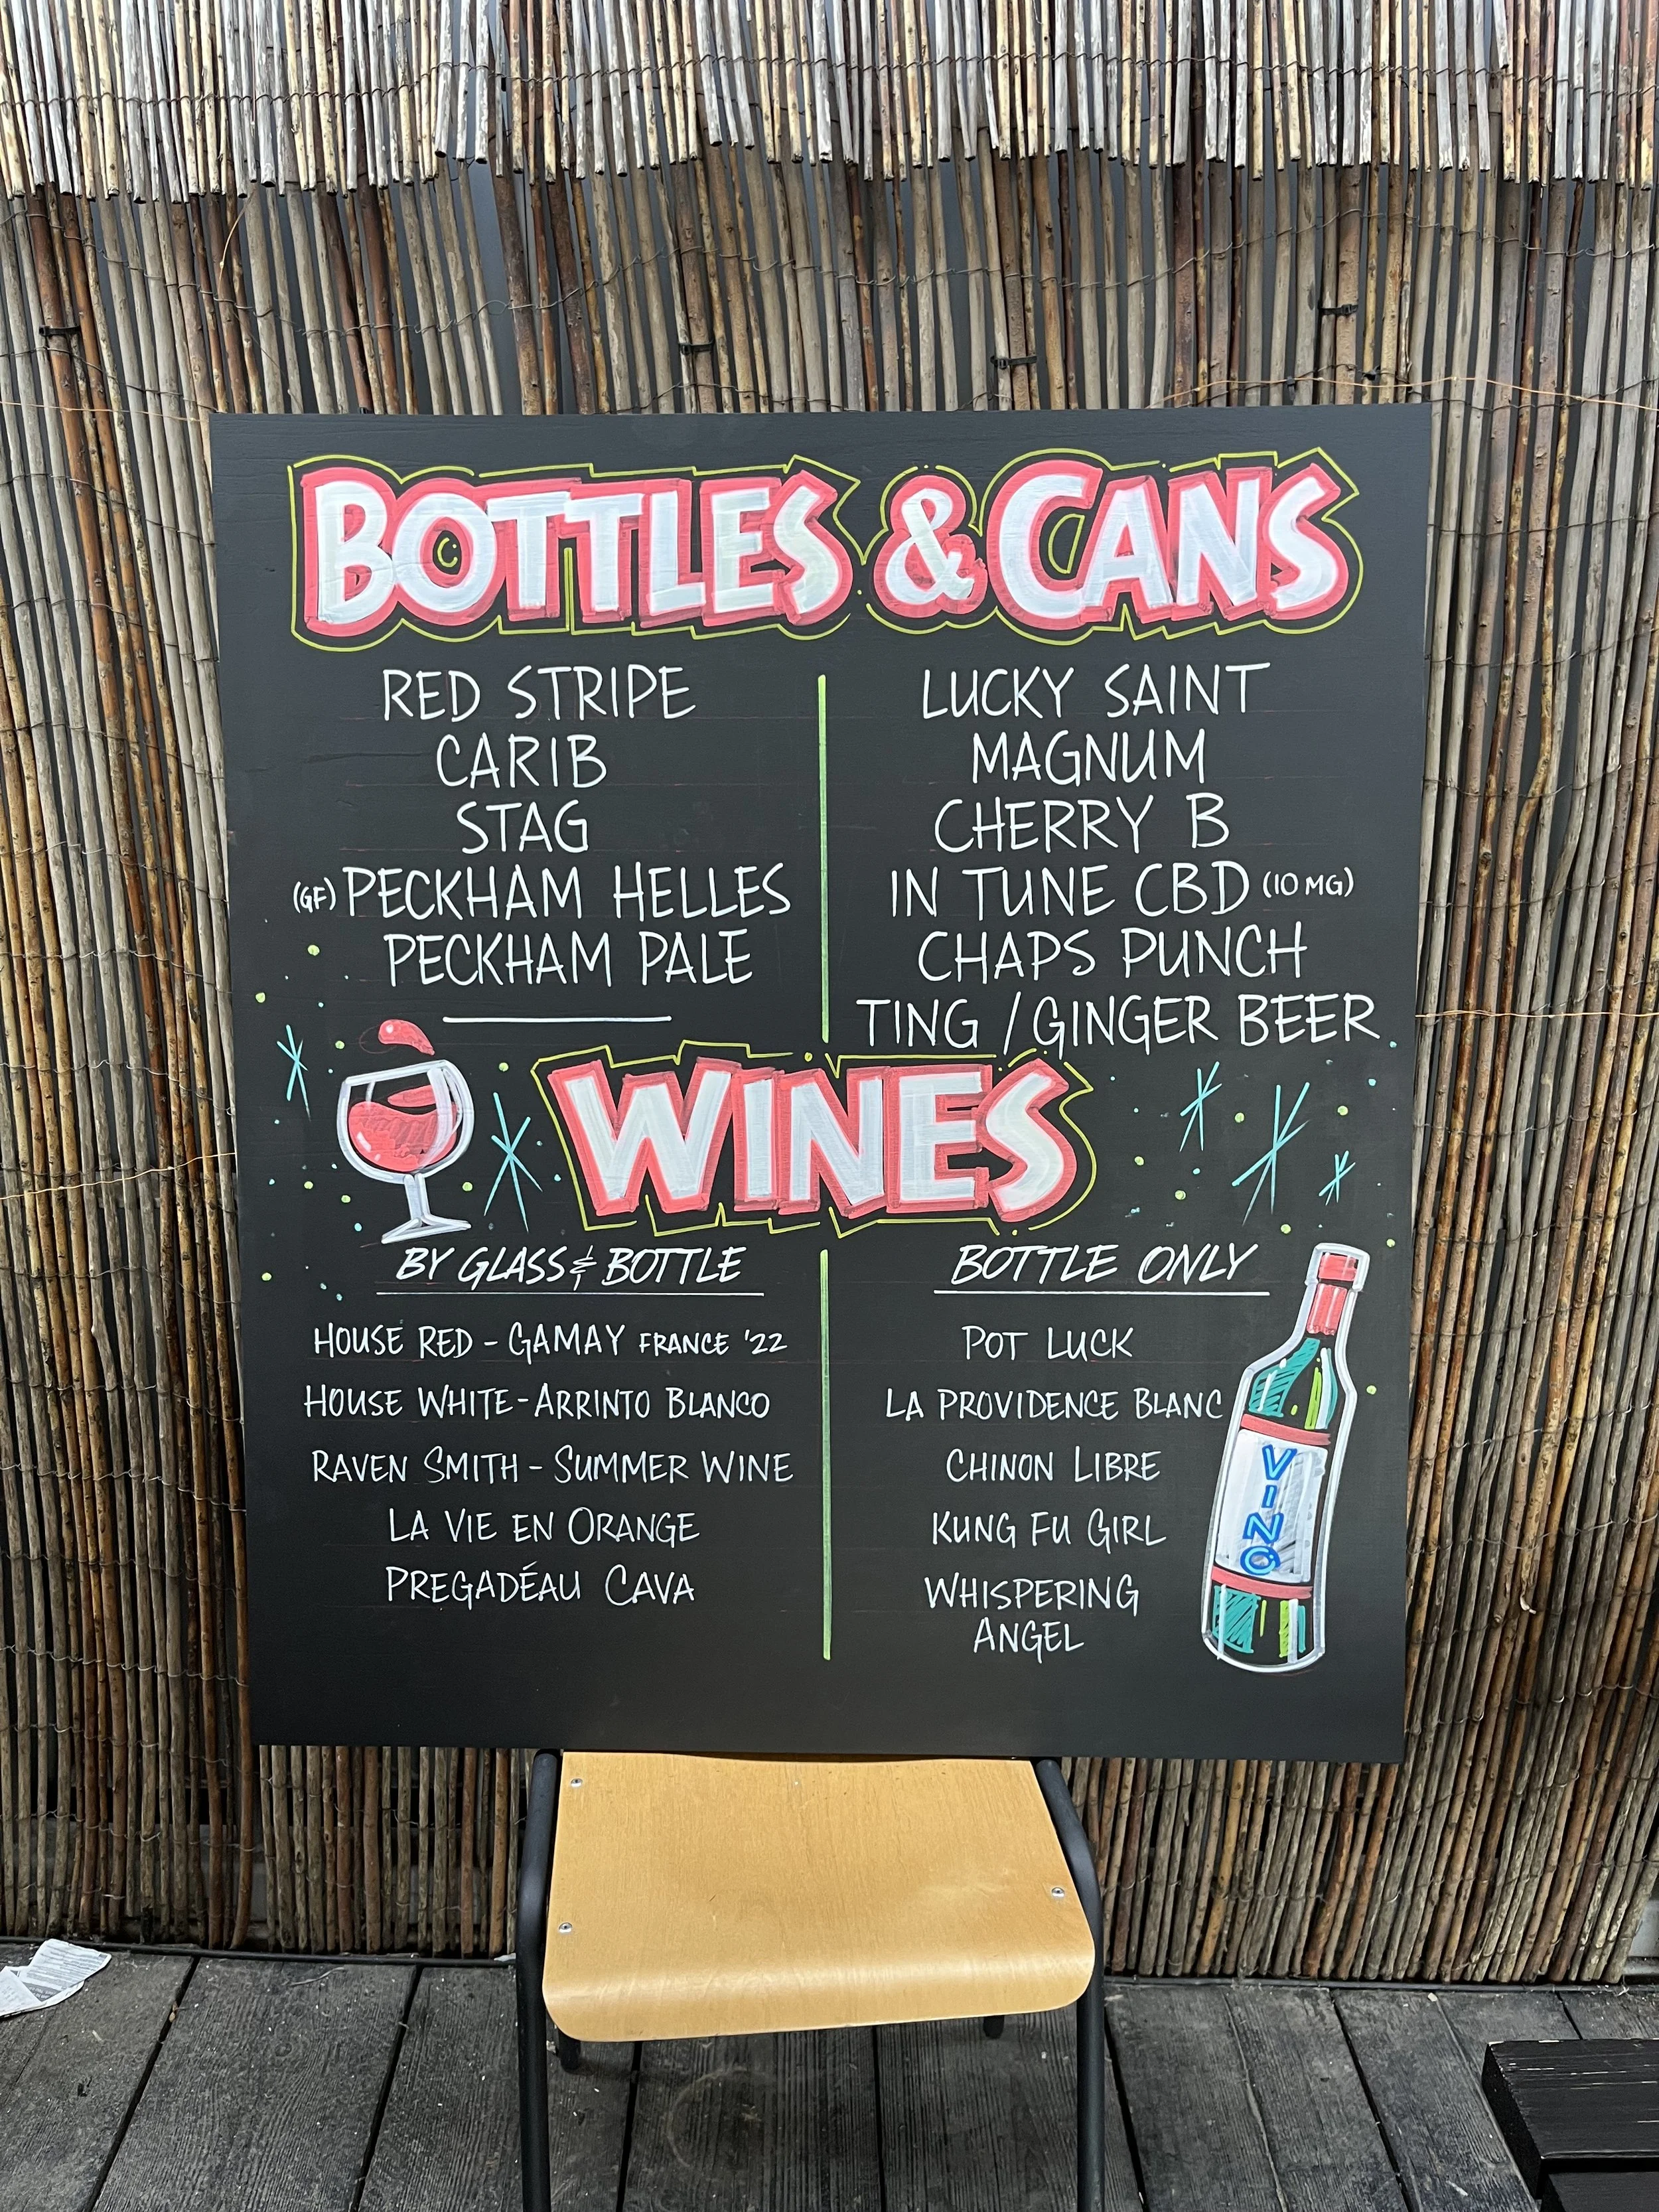 BOTTLES & CANS
RED STRIPE
CARIB
STAG
(GF) PECKHAM HELLES
PECKHAM PALE
LUCKY SAINT
MAGNUM
CHERRY B
IN TUNE CBD (10 MG)
CHAPS PUNCH
TING / GINGER BEER
WINES
BY GLASS & BOTTLE
HOUSE RED - GAMAY FRANCE '22
HOUSE WHITE - ARRINTO BLANCO
RAVEN SMITH - SUMMER WINE
LA VIE EN ORANGE
PREGADÉAU CAVA
BOTTLE ONLY
POT LUCK
LA PROVIDENCE BLANC
CHINON LIBRE
KUNG FU GIRL
WHISPERING
ANGEL
VINO